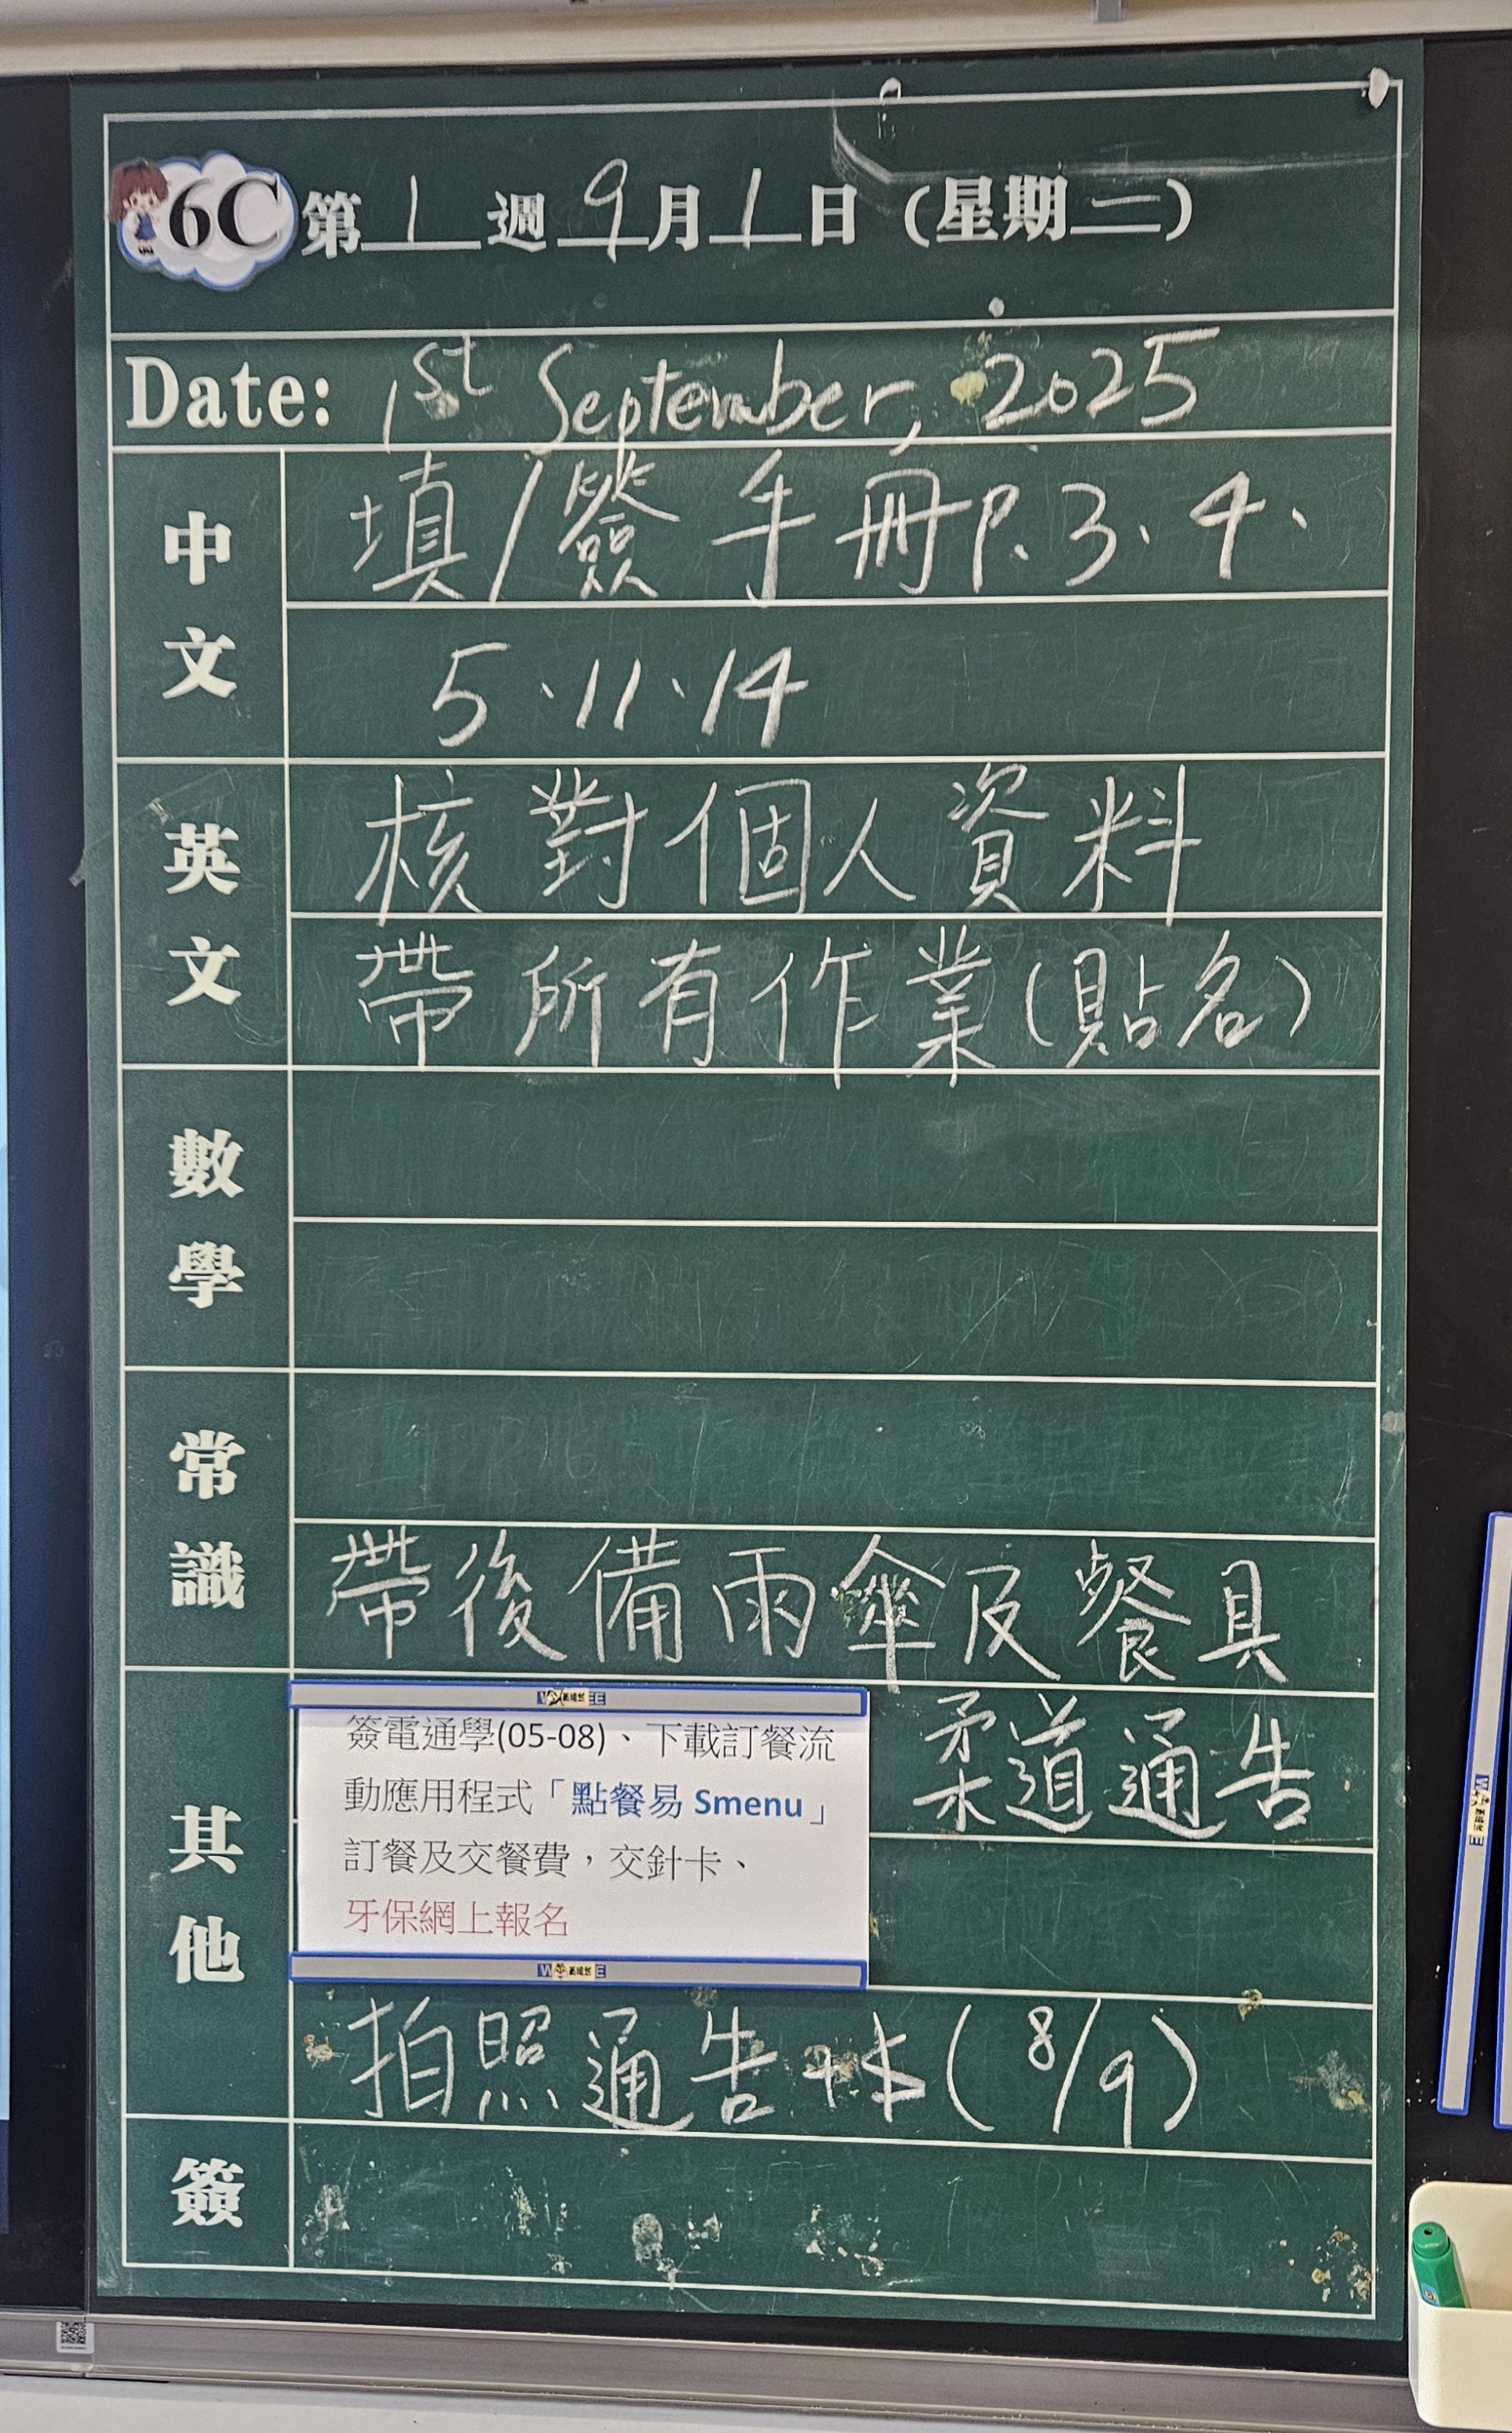 6C 第 1 週 9 月 1 日 (星期二)
Date: 1st September, 2025
中文
填/簽手冊P. 3、4、
5、11、14
英文
核對個人資料
帶所有作業(貼名)
數學
常識
帶後備雨傘及餐具
其他
簽電通學(05-08)、下載訂餐流
動應用程式「點餐易 Smenu」
訂餐及交餐費，交針卡、
牙保網上報名
柔道通告
拍照通告+$(8/9)
簽